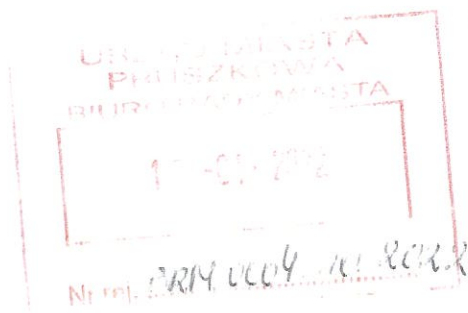 URZĄD MIASTA
PRUSZKOWA
BIURO RADY MIASTA
Nr rej. BRM.0004 10 2022